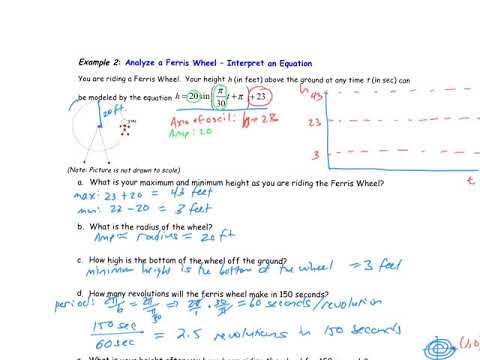 Example 2: Analyze a Ferris Wheel – Interpret an Equation
You are riding a Ferris Wheel. Your height h (in feet) above the ground at any time t (in sec) can
be modeled by the equation h = 20 sin(π/30 t + π) + 23
20 ft.
Axis of oscil: h = 23
Amp: 20
h
43
23
3
t
(Note: Picture is not drawn to scale)
a. What is your maximum and minimum height as you are riding the Ferris Wheel?
max: 23 + 20 = 43 feet
min: 23 - 20 = 3 feet
b. What is the radius of the wheel?
Amp = radius = 20 ft
c. How high is the bottom of the wheel off the ground?
minimum height is the bottom of the wheel = 3 feet
d. How many revolutions will the ferris wheel make in 150 seconds?
period: 2π/b = 2π/(π/30) ⇒ 2π/1 · 30/π = 60 seconds/revolution
150 sec/60 sec = 2.5 revolutions in 150 seconds
(1,0)